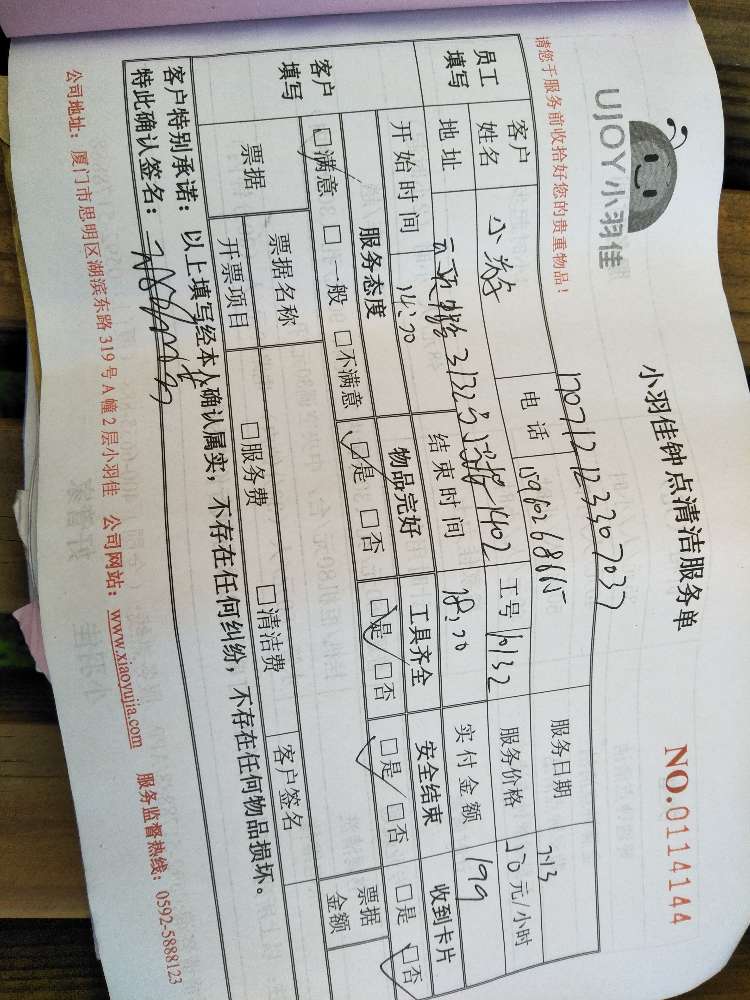 UJOY小羽佳
小羽佳钟点清洁服务单
NO.0114144
请您于服务前收拾好您的贵重物品！
员工填写
客户姓名
电话
服务日期
7.13
地址
工号 10132
服务价格
元/小时
开始时间 14:30
结束时间 18:30
实付金额 199
客户填写
服务态度
物品完好
工具齐全
安全结束
收到卡片
□满意 □一般 □不满意
□是 □否
□是 □否
□是 □否
□是 □否
票据
票据名称
票据金额
开票项目
□服务费
□清洁费
客户签名
客户特别承诺：以上填写经本人确认属实，不存在任何纠纷，不存在任何物品损坏。
特此确认签名：
公司地址：厦门市思明区湖滨东路319号A幢2层小羽佳 公司网站：www.xiaoyujia.com 服务监督热线：0592-5888123